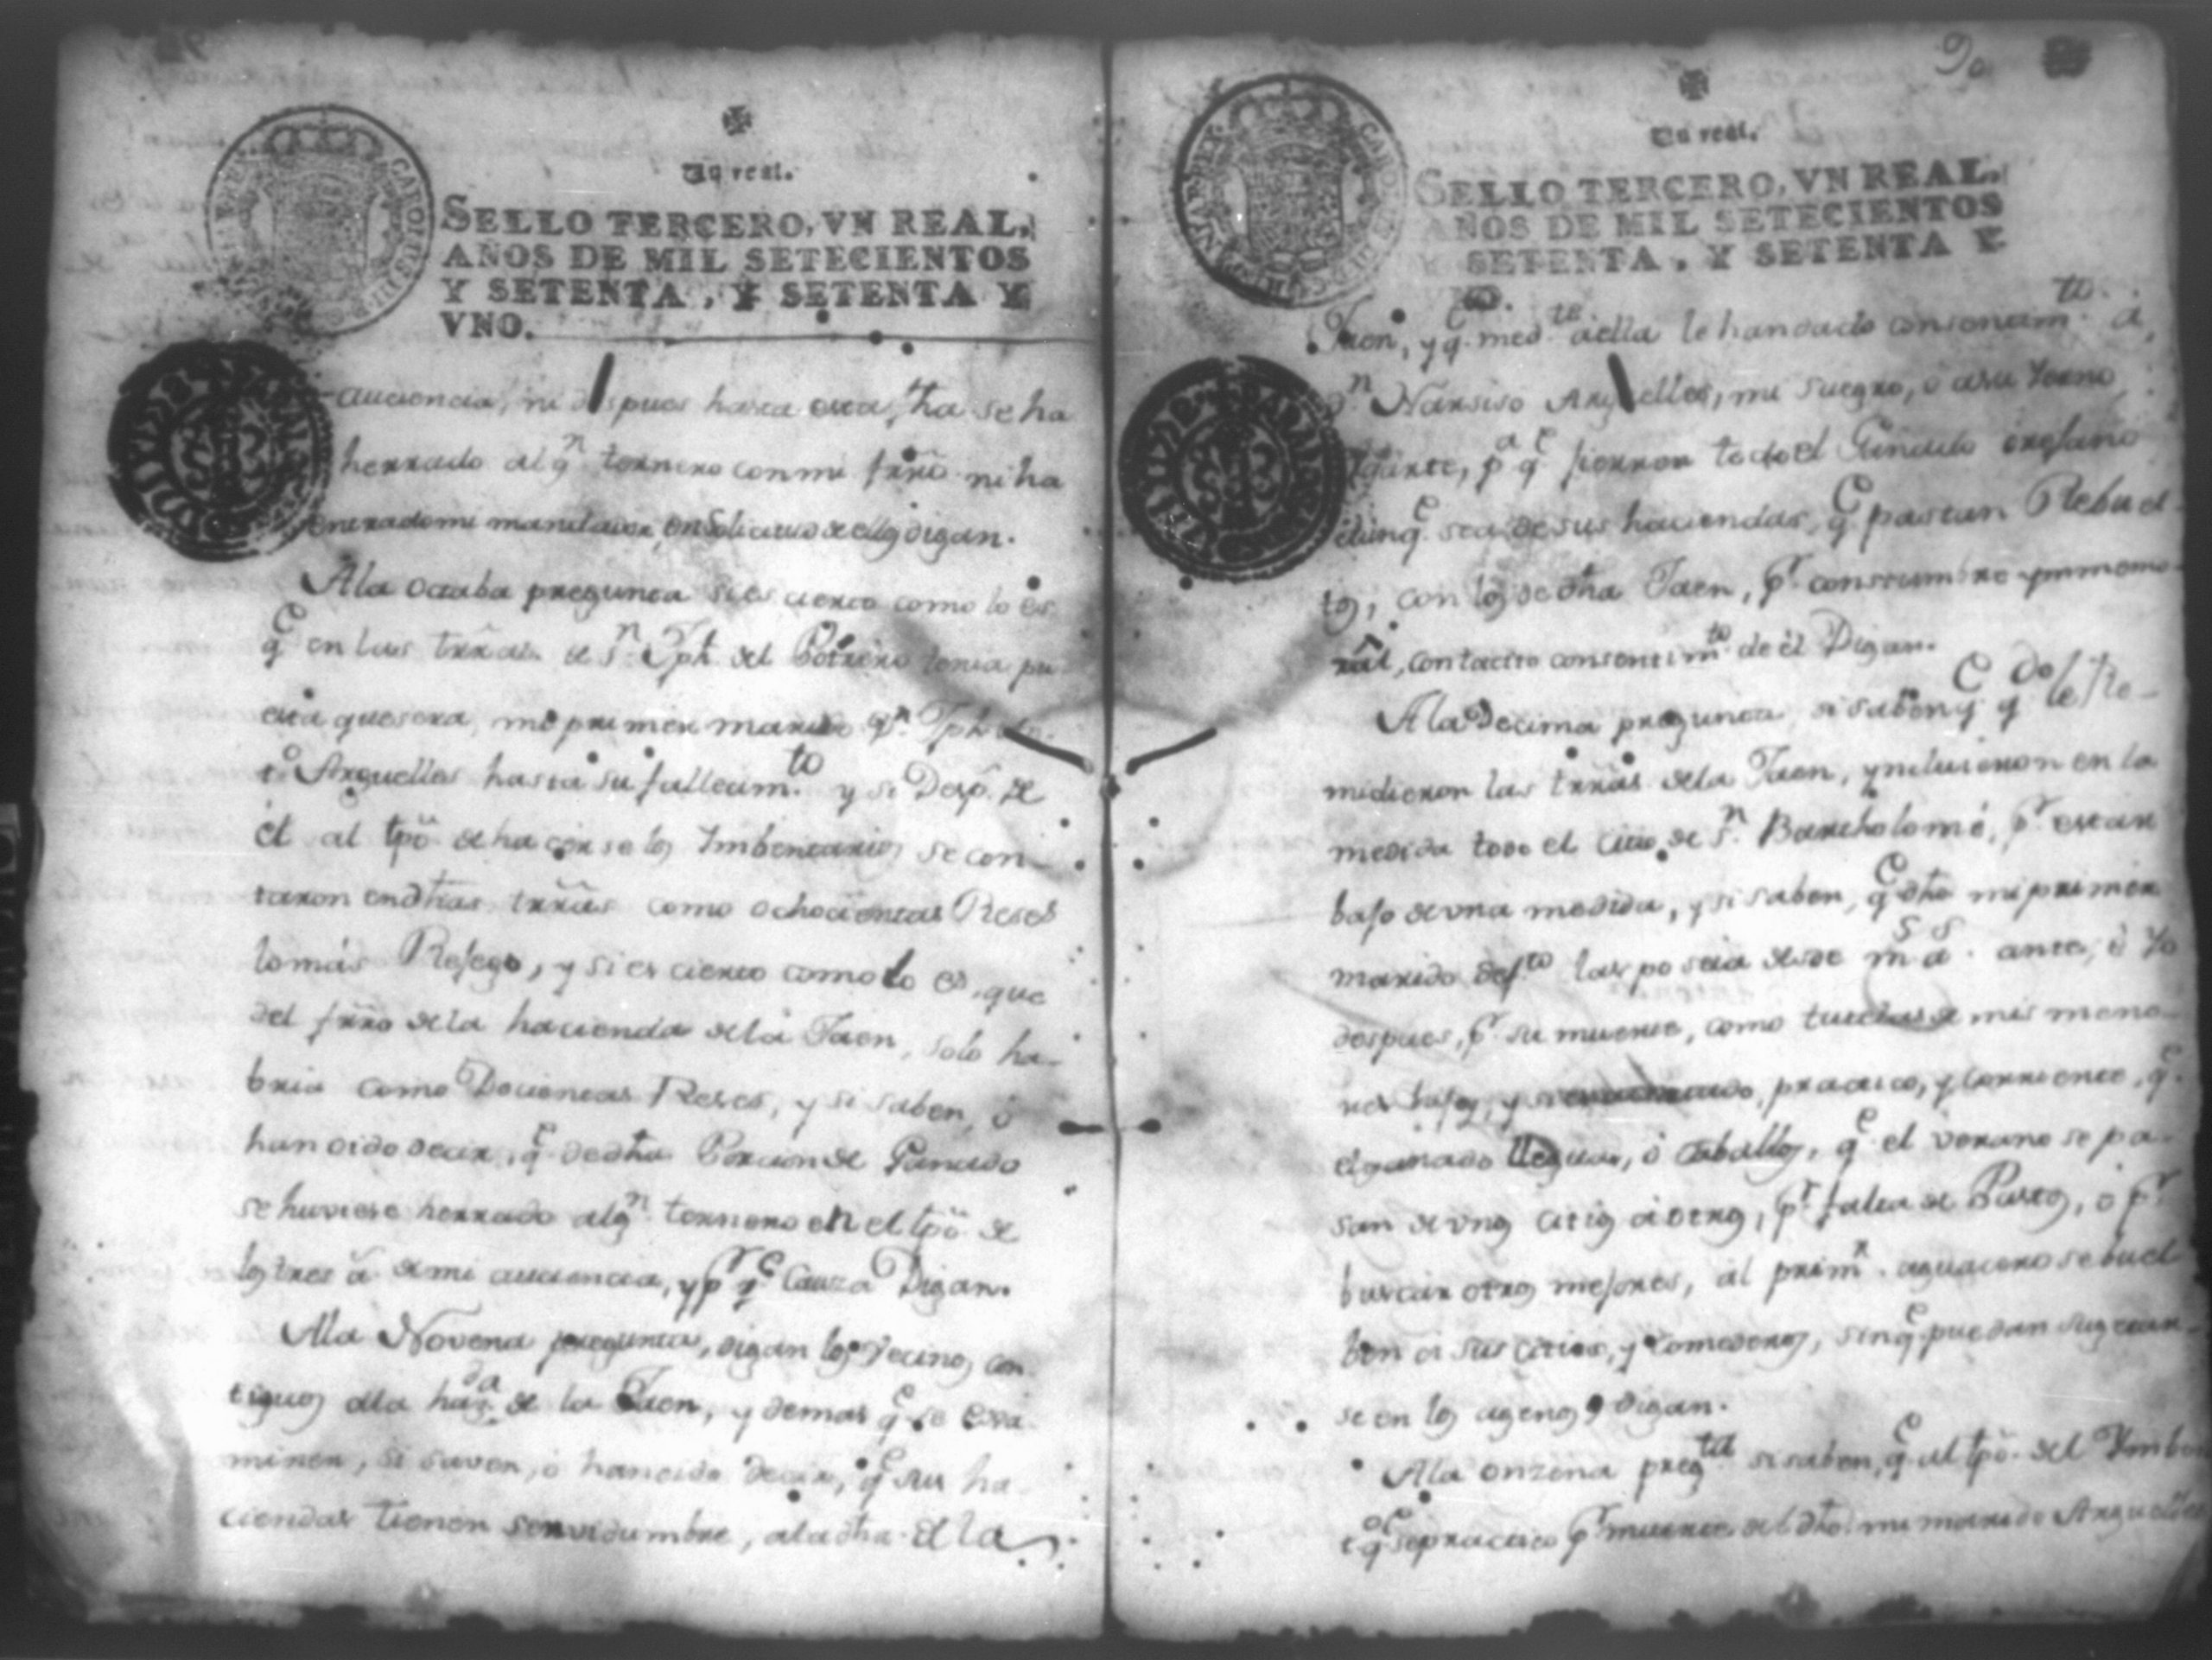 Un real.
SELLO TERCERO, VN REAL,
AÑOS DE MIL SETECIENTOS
Y SETENTA, Y SETENTA Y
VNO.
auciencia, ni despues hasta esta fha se ha
herrado alg.n ternero con mi frro ni ha
entrado mi manila en solicitud de ello digan.
Ala octaba pregunta si es cierto como lo es
q.e en las trras. de S.n Jph del Potrero tenia pu
esta quesera, mi primer marido D.n Jph An.
t.o Arguelles hasta su fallecim.to y si Desp.s de
él al tpo de hacerse los Ymbentarios se con
taron en dhas trras como ochocientas Reses
lo más Rejego, y si es cierto como lo es, que
del frro de la hacienda de la Jaen, solo ha
bria como Docientas Reses, y si saben, ó
han oido decir, q.e de dha Porcion de Ganado
se huviese herrado alg.n ternero en el tpo de
los tres a.s de mi auciencia, y p.r q.e Cauza Digan.
Ala Novena pregunta, digan los Vecinos con
tiguos ala haz.da de la Jaen, y demas q.e se exa
minen, si saven, ó han oido decir, q.e sus ha
ciendas tienen servidumbre, ala dha de la
90
Un real.
SELLO TERCERO, VN REAL,
AÑOS DE MIL SETECIENTOS
Y SETENTA, Y SETENTA Y
VNO.
Jaen, y q.e med.te a ella le han dado consentim.to á
D.n Narsiso Arguelles, mi suegro, ó a su Yerno
p.a q.e fierren todo el Ganado orejano
aunq.e sea de sus haciendas, q.e pastan Rebuel
tos, con los de dha Jaen, p.r constumbre ynmemo
rial, con tacito consentim.to de él Digan.
Ala Decima pregunta, si saben q.e q.do se Re
midieron las trras de la Jaen, yncluieron en la
medida todo el citio de S.n Bartholomé, p.r estar
bajo de una medida, y si saben, q.e dho mi primer
marido def.to las poseia desde m.s a.s antes, ó Yo
despues, p.r su muerte, como tutora de mis meno
res hijos, y si practico, y corriente, q.e
el ganado Lleguas, ó caballos, q.e el verano se pa
san de unos citios á otros, p.r falta de Pastos, ó p.r
buscar otros mejores, al prim.r aguacero se buel
ben a sus citios, y comederos, sin q.e puedan sugetar
se en los agenos digan.
Ala onzena preg.ta si saben, q.e al tpo. del Ymben
t.o q.e se practico p.r muerte del dho mi marido Arguelles